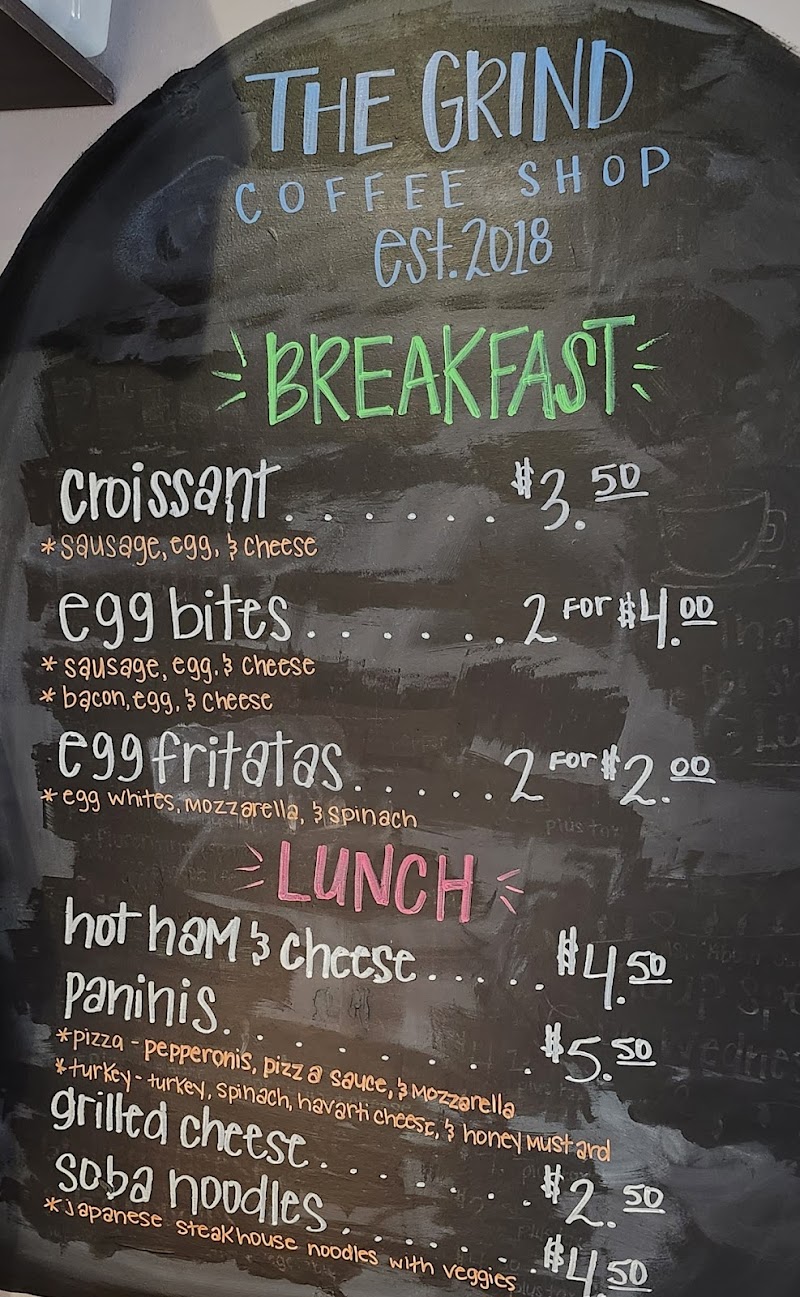 THE GRIND
COFFEE SHOP
est. 2018
BREAKFAST
croissant........$3.50
*sausage, egg, & cheese
egg bites.......2 FOR $4.00
*sausage, egg, & cheese
*bacon, egg, & cheese
egg fritatas......2 FOR $2.00
*egg whites, mozzarella, & spinach
plus tax
LUNCH
hot ham & cheese......$4.50
paninis.........$5.50
*pizza - pepperonis, pizza sauce, & mozzarella
*turkey - turkey, spinach, havarti cheese, & honey mustard
grilled cheese........$2.50
soba noodles........$4.50
*Japanese steakhouse noodles with veggies